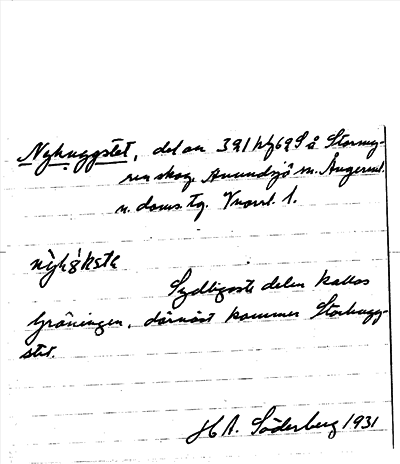 Nyhuggstet, del av 321 hf69S å Stormy-
ren skog Anundsjö sn. Ångerml.
n. doms tg. Vnorrl. l.
nỳhǵkstɐ
Sydligaste delen kallas
Gräningen, därnäst kommer Storhugg-
stet.
H A. Söderberg 1931